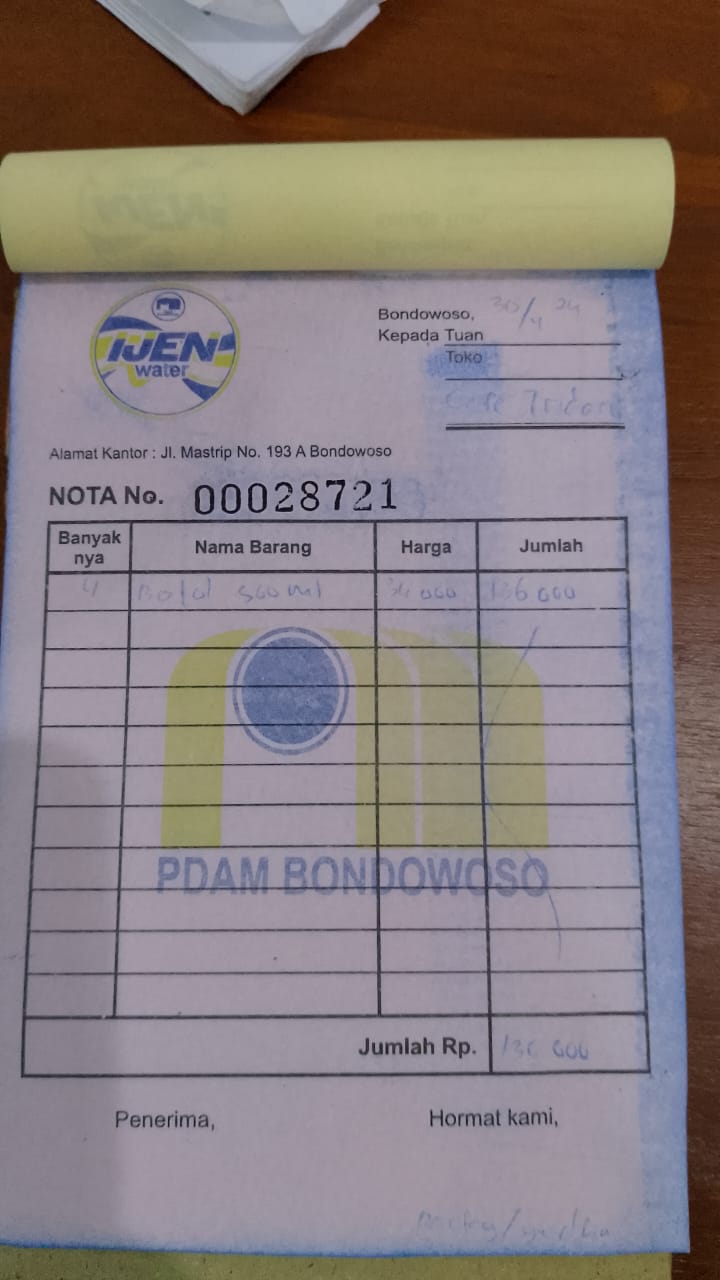 IJEN
water
Bondowoso, 30/4 24
Kepada Tuan
Toko
Alamat Kantor : Jl. Mastrip No. 193 A Bondowoso
NOTA No. 00028721
Banyak nya Nama Barang Harga Jumlah
4 Botol 500 ml 34 000 136 000
PDAM BONDOWOSO
Jumlah Rp. 136 000
Penerima, Hormat kami,